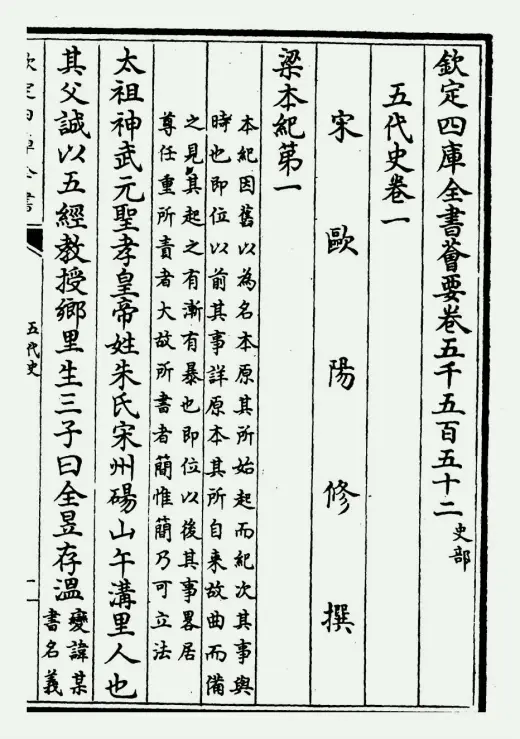 欽定四庫全書薈要卷五千五百五十二 史部
五代史卷一
宋 歐陽修 撰
梁本紀第一
本紀因舊以為名本原其所始起而紀次其事與
時也即位以前其事詳原本其所自来故曲而備
之見其起之有漸有暴也即位以後其事畧居
尊任重所責者大故所書者簡惟簡乃可立法
太祖神武元聖孝皇帝姓朱氏宋州碭山午溝里人也
其父誠以五經教授鄉里生三子曰全昱存溫
變諱某
書名義
五代史